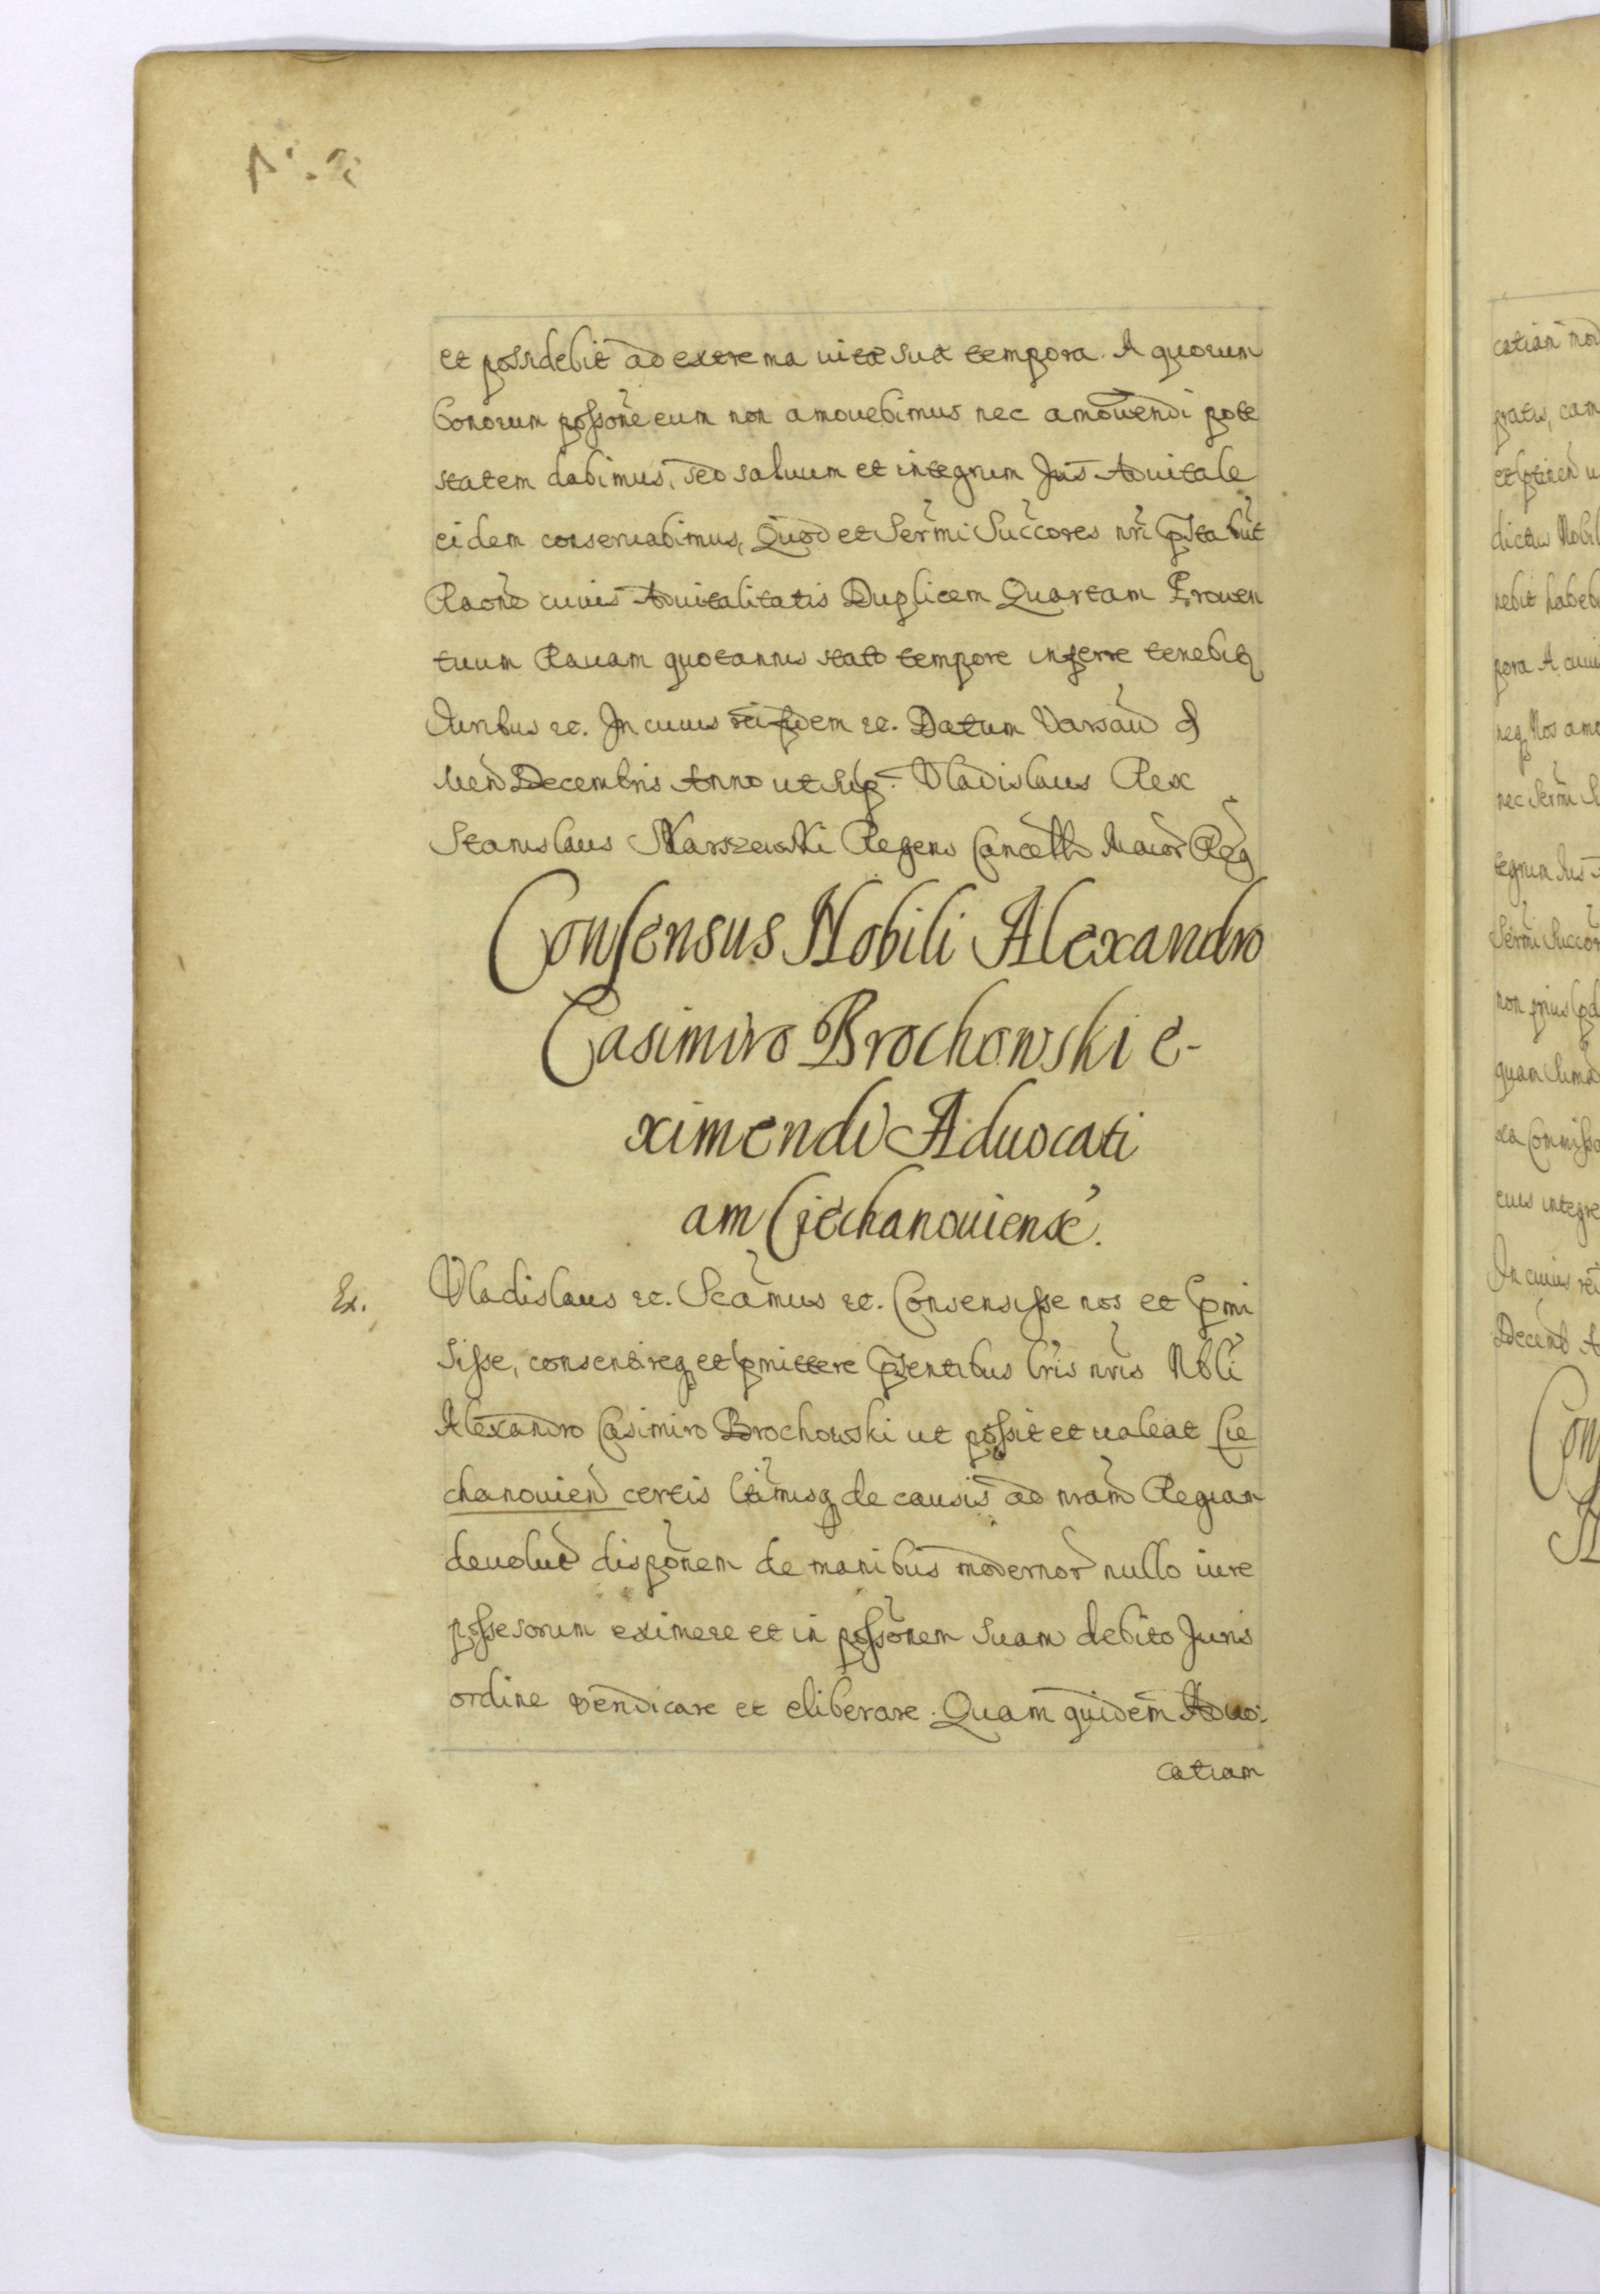 et possidebit ad extrema uitæ suæ tempora. A quorum
bonorum possone eum non amouebimus nec amouendi pote
statem dabimus, sed saluum et integrum Jus Aduitale
eidem conseruabimus, Quod et Sermi Succores nri pstabūt
Raone cuius Aduitalitatis Duplicem Quartam Prouen
tuum Rauam quotannis stato tempore inferre tenebitq
Juribus etc. In cuius rei fidem etc. Datum Varsau d
Men Decembris Anno ut sup. Vladislaus Rex
Stanislaus Skarszewski Regens Cancell Maior Reg
Consensus Nobili Alexandro
Casimiro Brochowski e-
ximendi Aduocati
am Ciechanouiense.
Ex. Vladislaus etc. Scamus etc. Consensisse nos et pmi
sisse, consentireq et pmittere psentibus lris nris Nbli
Alexandro Casimiro Brochowski ut possit et ualeat Cie
chanouien certis ltimisq de causis ad nram Regiam
deuolut disponem de manibus modernor nullo iure
possesorum eximere et in possonem suam debito Juris
ordine vendicare et eliberare. Quam quidem Aduo-
catiam